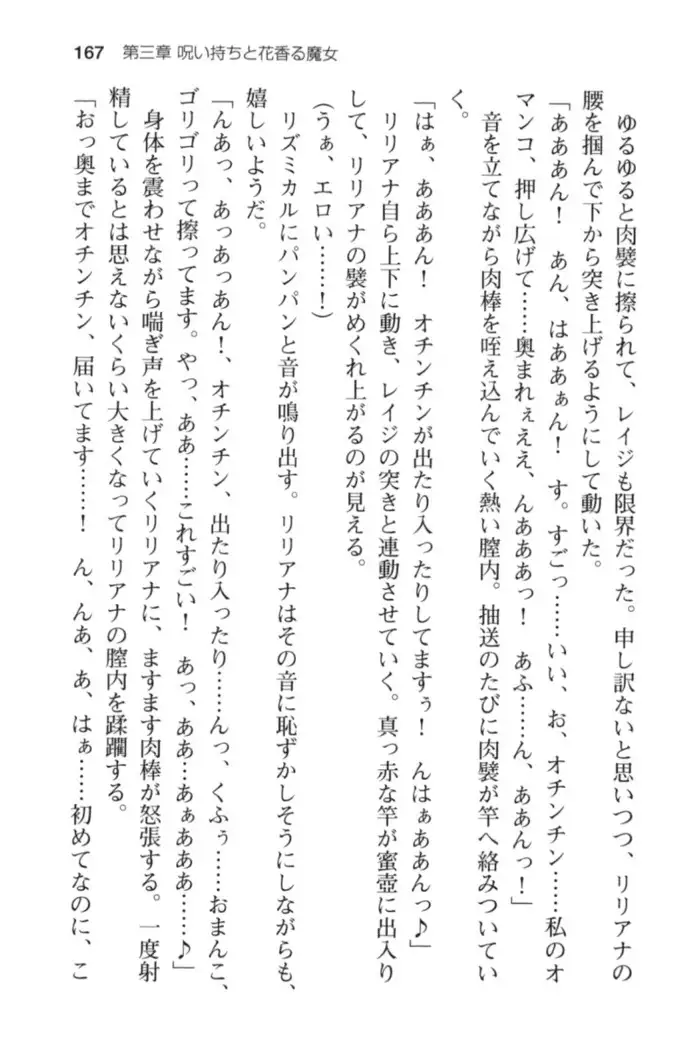 167 第三章 呪い持ちと花香る魔女
ゆるゆると肉襞に擦られて、レイジも限界だった。申し訳ないと思いつつ、リリアナの
腰を掴んで下から突き上げるようにして動いた。
「あああん！ あん、はああぁん！ す。すごっ……いい、お、オチンチン……私のオ
マンコ、押し広げて……奥まれぇええ、んあああっ！ あふ……ん、ああんっ！」
音を立てながら肉棒を咥え込んでいく熱い膣内。抽送のたびに肉襞が竿へ絡みついてい
く。
「はぁ、あああん！ オチンチンが出たり入ったりしてますぅ！ んはぁああんっ♪」
リリアナ自ら上下に動き、レイジの突きと連動させていく。真っ赤な竿が蜜壺に出入り
して、リリアナの襞がめくれ上がるのが見える。
（うぁ、エロい……！）
リズミカルにパンパンと音が鳴り出す。リリアナはその音に恥ずかしそうにしながらも、
嬉しいようだ。
「んあっ、あっあっあん！、オチンチン、出たり入ったり……んっ、くふぅ……おまんこ、
ゴリゴリって擦ってます。やっ、ああ……これすごい！ あっ、ああ…あぁあああ……♪」
身体を震わせながら喘ぎ声を上げていくリリアナに、ますます肉棒が怒張する。一度射
精しているとは思えないくらい大きくなってリリアナの膣内を蹂躙する。
「おっ奥までオチンチン、届いてます……！ ん、んあ、あ、はぁ……初めてなのに、こ